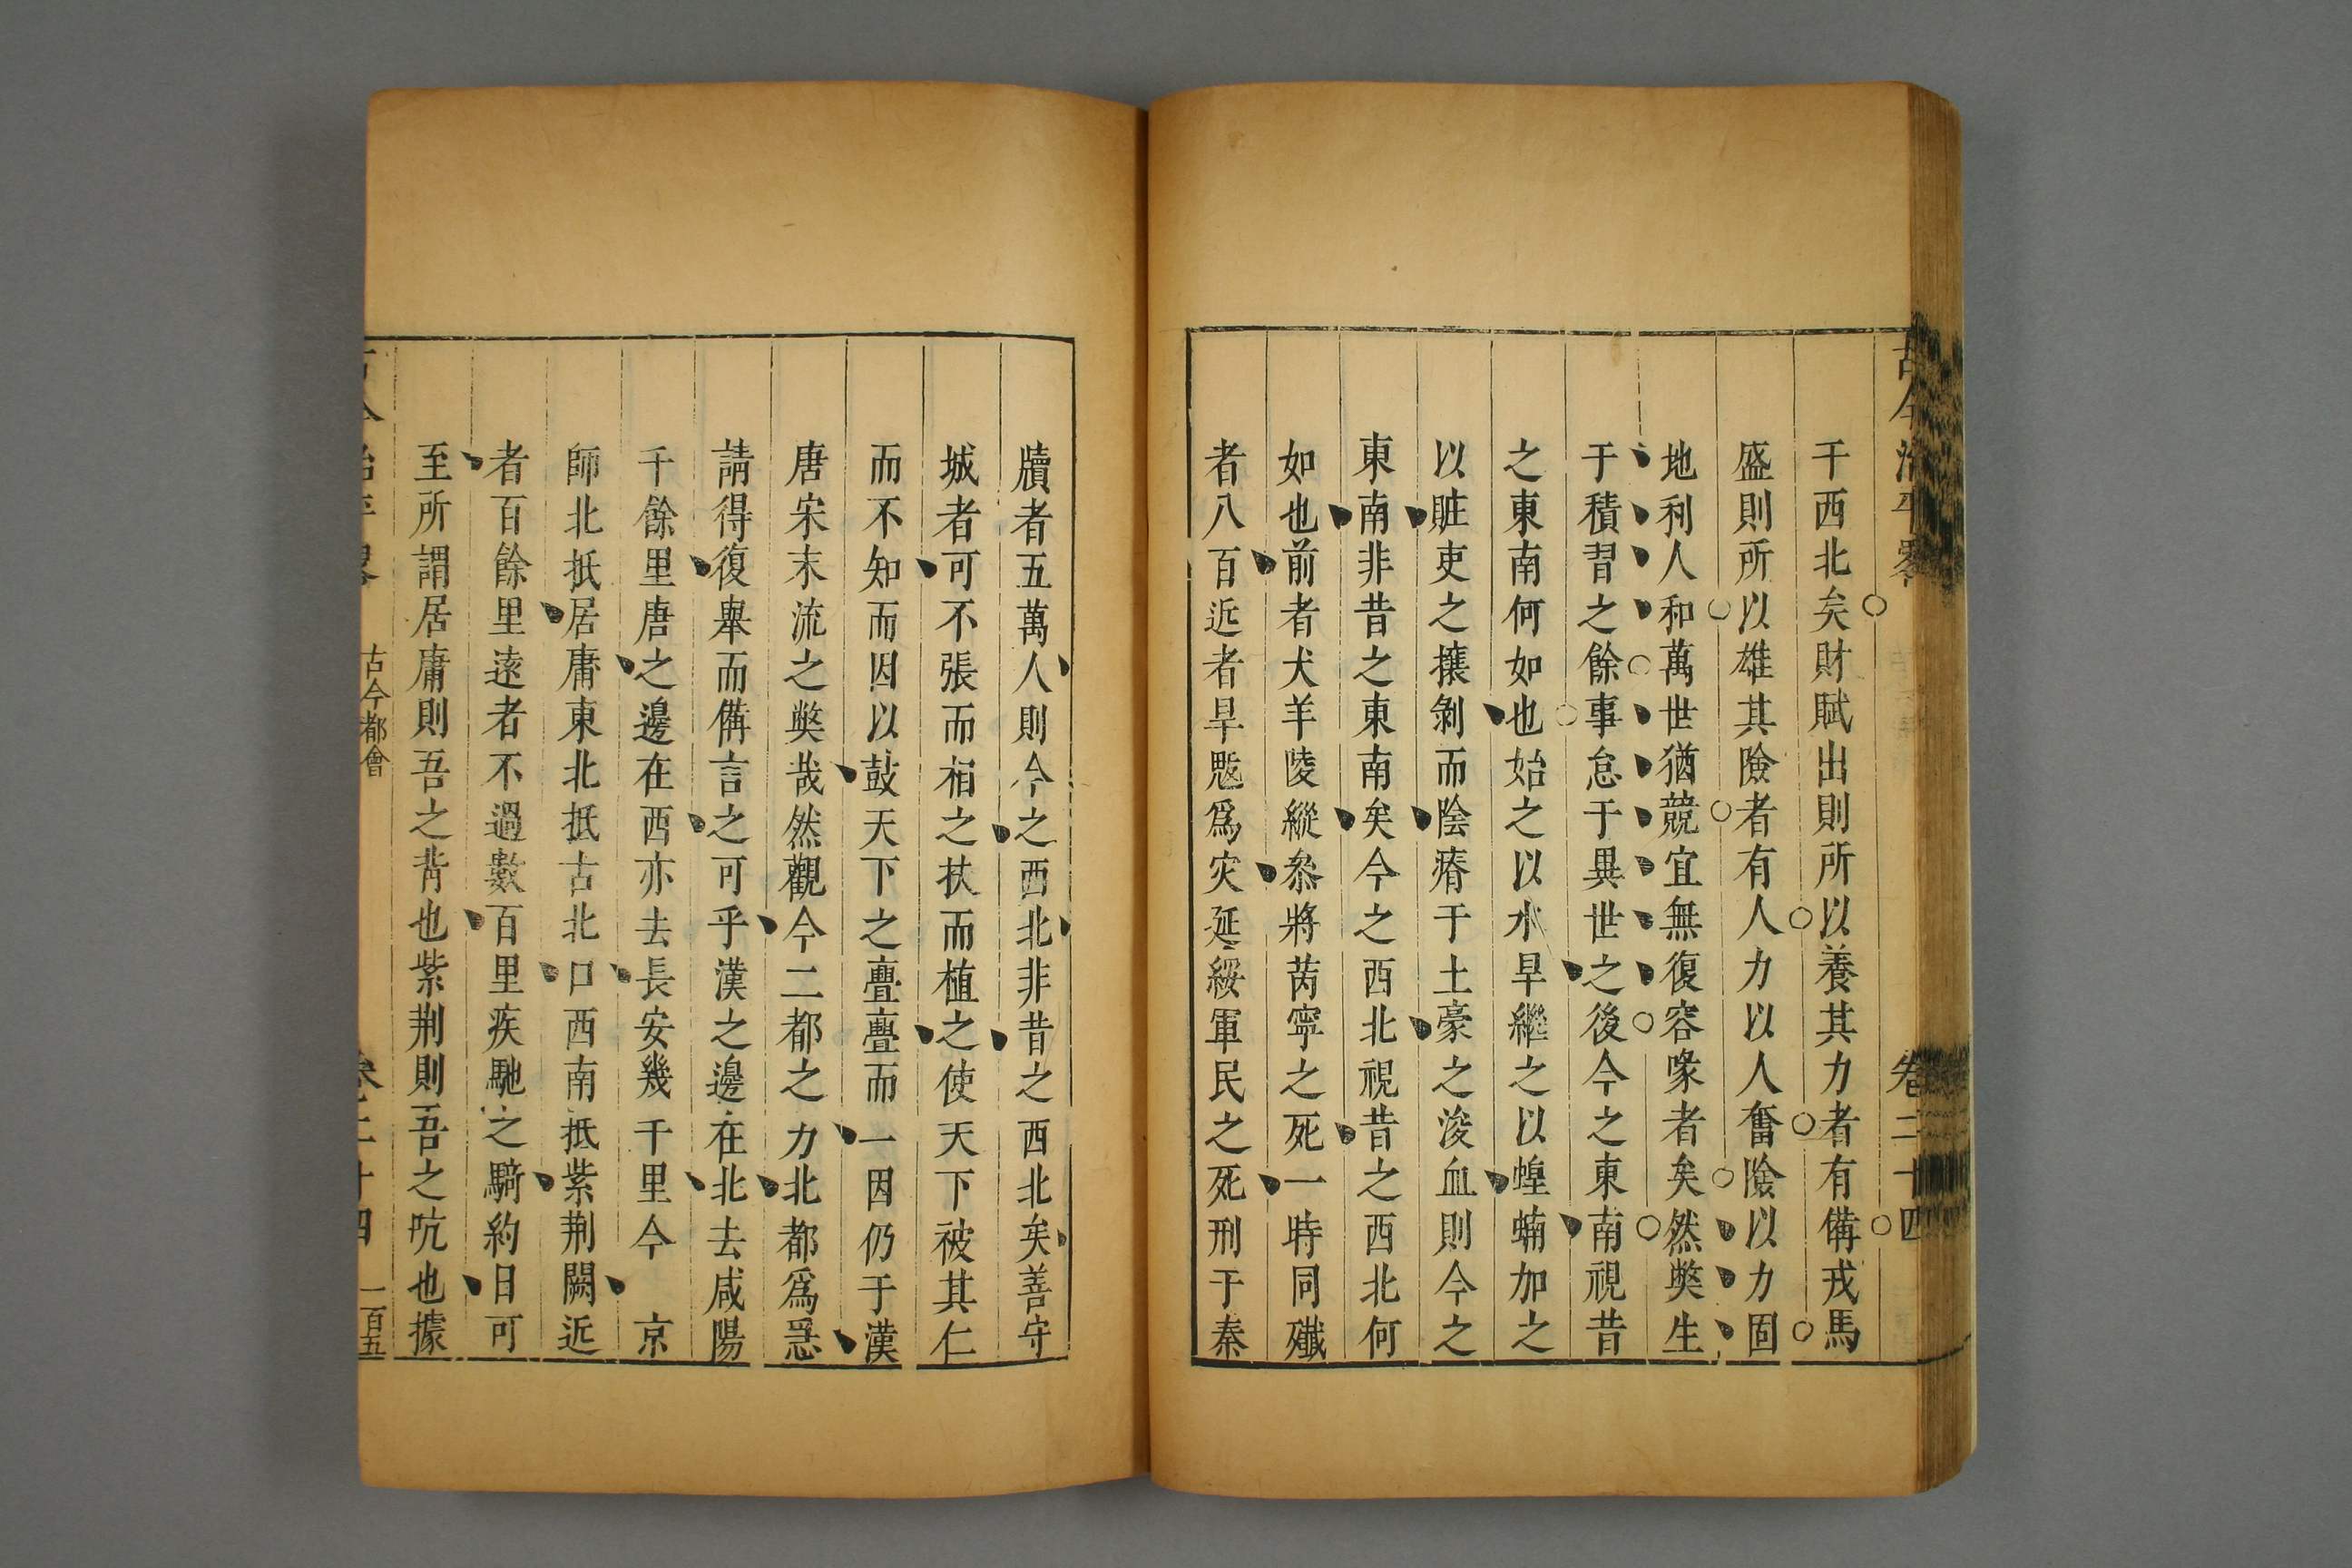 古今治平畧 卷二十四
千西北矣財賦出則所以養其力者有備戎馬
盛則所以雄其險者有人力以人奮險以力固
地利人和萬世猶競宜無復容喙者矣然獘生
于積習之餘事怠于異世之後今之東南視昔
之東南何如也始之以水旱繼之以蝗蝻加之
以賍吏之攘剝而陰瘠于土豪之浚血則今之
東南非昔之東南矣今之西北視昔之西北何
如也前者犬羊陵縱叅將芮寧之死一時同殲
者八百近者旱魃爲灾延綏軍民之死刑于秦
牘者五萬人則今之西北非昔之西北矣善守
城者可不張而相之扶而植之使天下被其仁
而不知而因以鼓天下之亹亹而一因仍于漢
唐宋末流之獘哉然觀今二都之力北都爲急
請得復舉而備言之可乎漢之邊在北去咸陽
千餘里唐之邊在西亦去長安幾千里今 京
師北抵居庸東北抵古北口西南抵紫荆關近
者百餘里遠者不過數百里疾馳之騎約日可
至所謂居庸則吾之背也紫荆則吾之吭也據
古今治平畧 古今都會 卷二十四 一百五